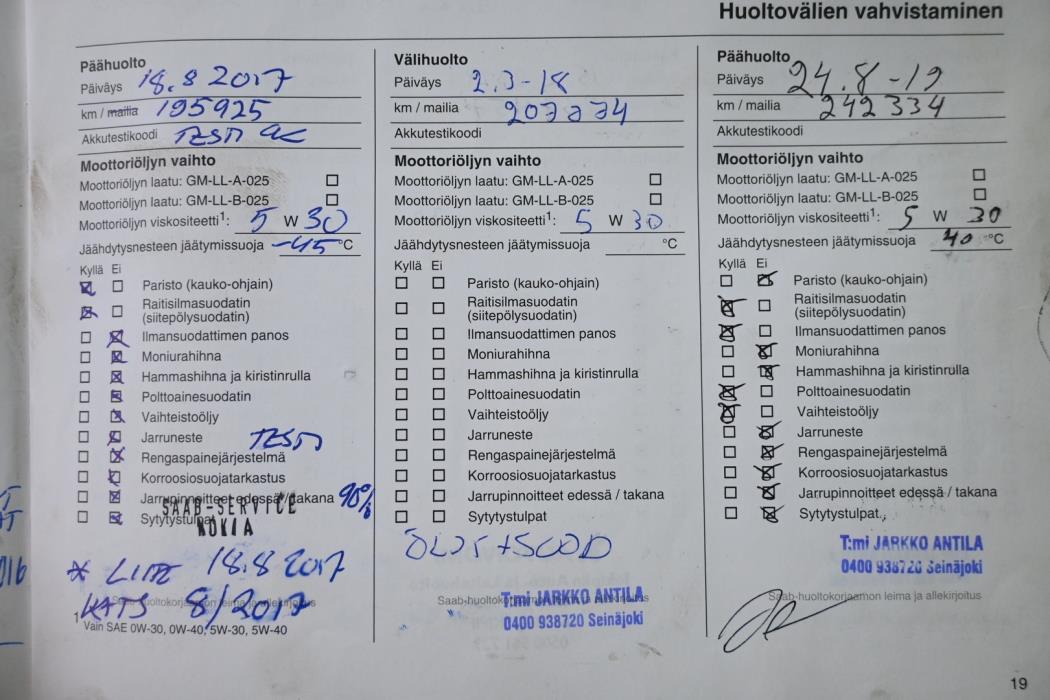 Huoltovälien vahvistaminen
Päähuolto
Päiväys 18.8 2017
km / mailia 195925
Akkutestikoodi TEST OK
Moottoriöljyn vaihto
Moottoriöljyn laatu: GM-LL-A-025
Moottoriöljyn laatu: GM-LL-B-025
Moottoriöljyn viskositeetti1: 5 W 30
Jäähdytysnesteen jäätymissuoja -45 °C
Kyllä Ei
Paristo (kauko-ohjain)
Raitisilmasuodatin
(siitepölysuodatin)
Ilmansuodattimen panos
Moniurahihna
Hammashihna ja kiristinrulla
Polttoainesuodatin
Vaihteistoöljy
Jarruneste
Rengaspainejärjestelmä
Korroosiosuojatarkastus
Jarrupinnoitteet edessä / takana 90%
Sytytystulpat
SAAB-SERVICE
NOKIA
18.8 2017
KATS 8/2017
Saab-huoltokorjaamon leima ja allekirjoitus
1 Vain SAE 0W-30, 0W-40, 5W-30, 5W-40
Välihuolto
Päiväys 2.3-18
km / mailia
Akkutestikoodi
Moottoriöljyn vaihto
Moottoriöljyn laatu: GM-LL-A-025
Moottoriöljyn laatu: GM-LL-B-025
Moottoriöljyn viskositeetti1: 5 W 30
Jäähdytysnesteen jäätymissuoja °C
Kyllä Ei
Paristo (kauko-ohjain)
Raitisilmasuodatin
(siitepölysuodatin)
Ilmansuodattimen panos
Moniurahihna
Hammashihna ja kiristinrulla
Polttoainesuodatin
Vaihteistoöljy
Jarruneste
Rengaspainejärjestelmä
Korroosiosuojatarkastus
Jarrupinnoitteet edessä / takana
Sytytystulpat
Saab-huoltokorjaamon leima ja allekirjoitus
T:mi JARKKO ANTILA
0400 938720 Seinäjoki
Päähuolto
Päiväys 24.8-19
km / mailia 242334
Akkutestikoodi
Moottoriöljyn vaihto
Moottoriöljyn laatu: GM-LL-A-025
Moottoriöljyn laatu: GM-LL-B-025
Moottoriöljyn viskositeetti1: 5 W 30
Jäähdytysnesteen jäätymissuoja 40 °C
Kyllä Ei
Paristo (kauko-ohjain)
Raitisilmasuodatin
(siitepölysuodatin)
Ilmansuodattimen panos
Moniurahihna
Hammashihna ja kiristinrulla
Polttoainesuodatin
Vaihteistoöljy
Jarruneste
Rengaspainejärjestelmä
Korroosiosuojatarkastus
Jarrupinnoitteet edessä / takana
Sytytystulpat
T:mi JARKKO ANTILA
0400 938720 Seinäjoki
Saab-huoltokorjaamon leima ja allekirjoitus
19